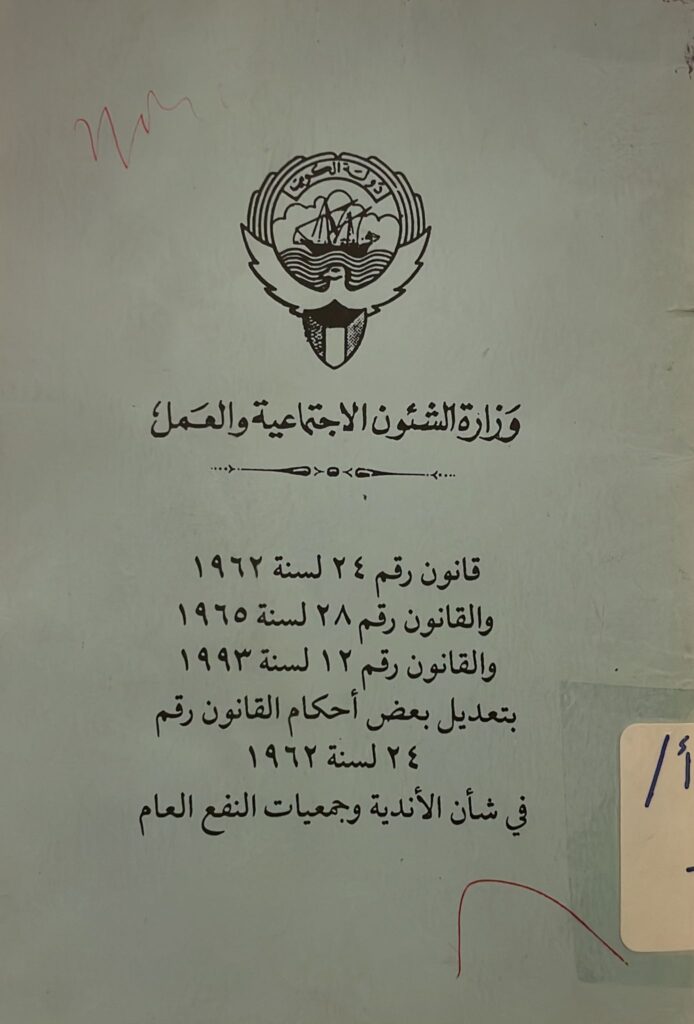 دولة الكويت
وزارة الشئون الاجتماعية والعمل
قانون رقم ٢٤ لسنة ١٩٦٢
والقانون رقم ٢٨ لسنة ١٩٦٥
والقانون رقم ١٢ لسنة ١٩٩٣
بتعديل بعض أحكام القانون رقم
٢٤ لسنة ١٩٦٢
في شأن الأندية وجمعيات النفع العام
أ/